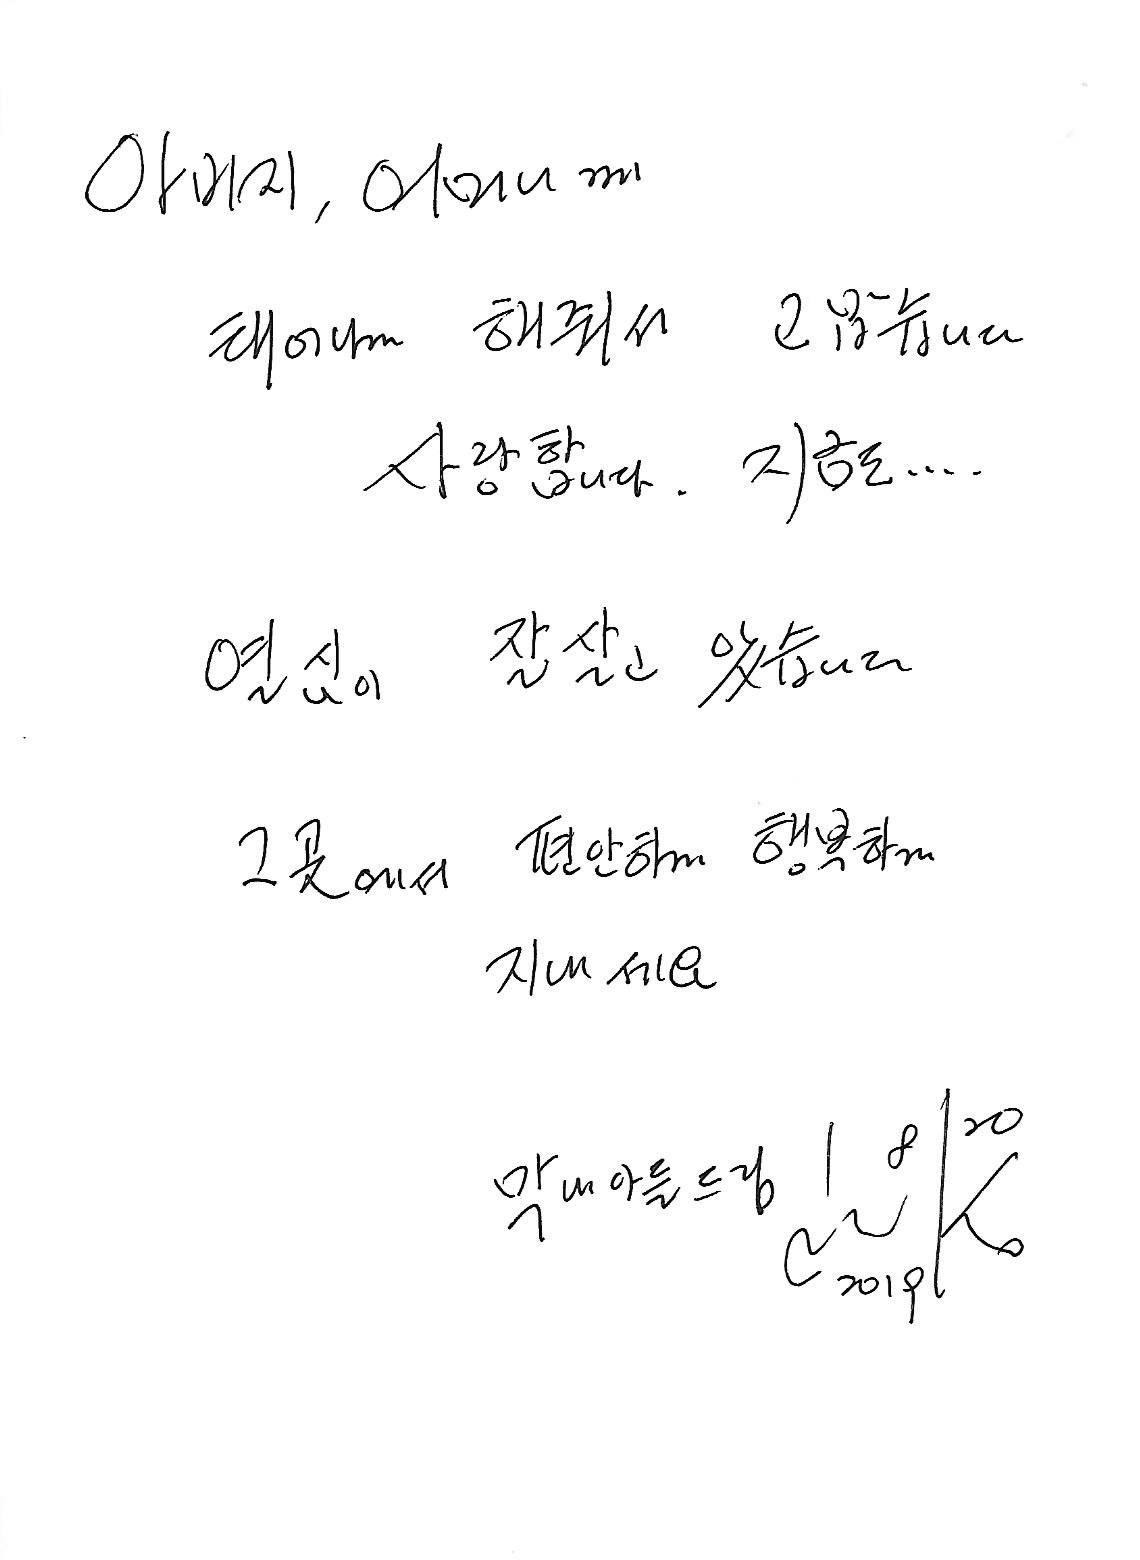 아버지, 어머니께
태어나게 해줘서 고맙습니다
사랑합니다. 지금도....
열심이 잘 살고 있습니다
그곳에서 편안하게 행복하게
지내세요
막내아들 드림
8 20
2019